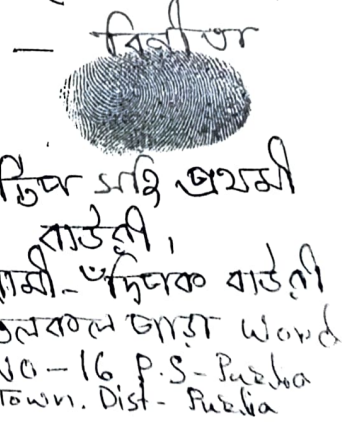 — বিনীতা
টিপ সহি প্রথমী
বাউরী,
স্বামী - ঁদিপক বাউরী
পাড়া Word
NO - 16 P.S - Purulia
Town. Dist - Purulia